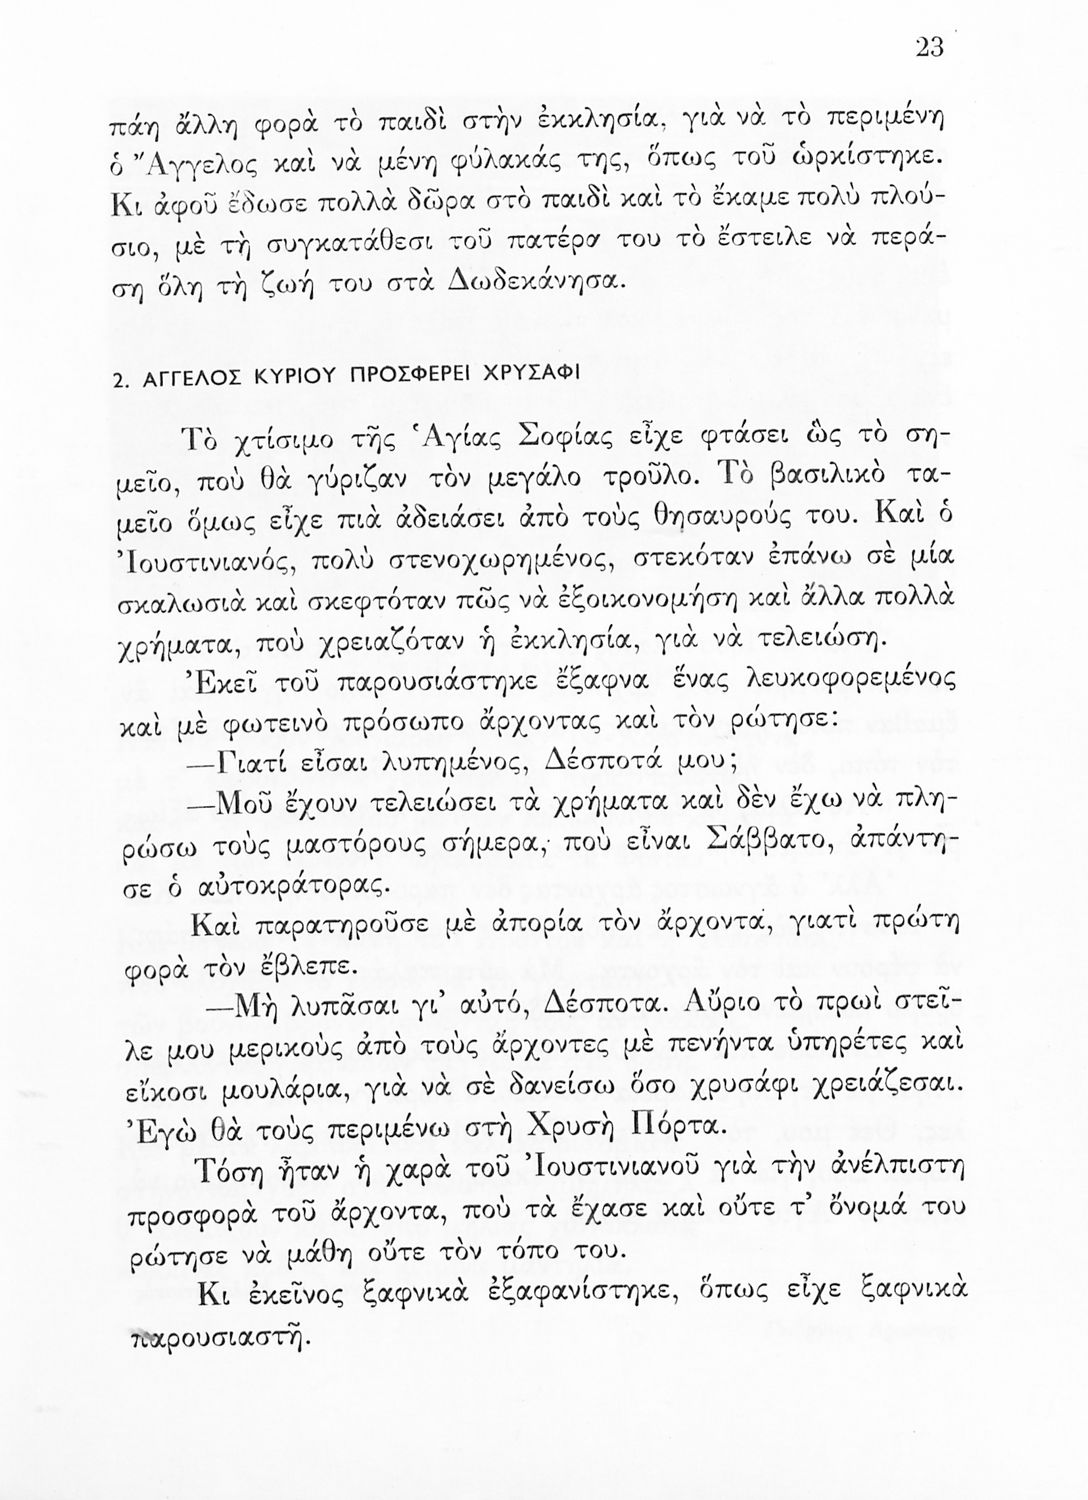 23
πάη ἄλλη φορὰ τὸ παιδὶ στὴν ἐκκλησία, γιὰ νὰ τὸ περιμένη
ὁ Ἄγγελος καὶ νὰ μένη φύλακάς της, ὅπως τοῦ ὡρκίστηκε.
Κι ἀφοῦ ἔδωσε πολλὰ δῶρα στὸ παιδὶ καὶ τὸ ἔκαμε πολὺ πλού-
σιο, μὲ τὴ συγκατάθεσι τοῦ πατέρα του τὸ ἔστειλε νὰ περά-
ση ὅλη τὴ ζωή του στὰ Δωδεκάνησα.
2. ΑΓΓΕΛΟΣ ΚΥΡΙΟΥ ΠΡΟΣΦΕΡΕΙ ΧΡΥΣΑΦΙ
Τὸ χτίσιμο τῆς Ἁγίας Σοφίας εἶχε φτάσει ὣς τὸ ση-
μεῖο, ποὺ θὰ γύριζαν τὸν μεγάλο τροῦλο. Τὸ βασιλικὸ τα-
μεῖο ὅμως εἶχε πιὰ ἀδειάσει ἀπὸ τοὺς θησαυρούς του. Καὶ ὁ
Ἰουστινιανός, πολὺ στενοχωρημένος, στεκόταν ἐπάνω σὲ μία
σκαλωσιὰ καὶ σκεφτόταν πῶς νὰ ἐξοικονομήση καὶ ἄλλα πολλὰ
χρήματα, ποὺ χρειαζόταν ἡ ἐκκλησία, γιὰ νὰ τελειώση.
Ἐκεῖ τοῦ παρουσιάστηκε ἔξαφνα ἕνας λευκοφορεμένος
καὶ μὲ φωτεινὸ πρόσωπο ἄρχοντας καὶ τὸν ρώτησε:
—Γιατί εἶσαι λυπημένος, Δέσποτά μου;
—Μοῦ ἔχουν τελειώσει τὰ χρήματα καὶ δὲν ἔχω νὰ πλη-
ρώσω τοὺς μαστόρους σήμερα, ποὺ εἶναι Σάββατο, ἀπάντη-
σε ὁ αὐτοκράτορας.
Καὶ παρατηροῦσε μὲ ἀπορία τὸν ἄρχοντα, γιατὶ πρώτη
φορὰ τὸν ἔβλεπε.
—Μὴ λυπᾶσαι γι’ αὐτό, Δέσποτα. Αὔριο τὸ πρωὶ στεῖ-
λε μου μερικοὺς ἀπὸ τοὺς ἄρχοντες μὲ πενήντα ὑπηρέτες καὶ
εἴκοσι μουλάρια, γιὰ νὰ σὲ δανείσω ὅσο χρυσάφι χρειάζεσαι.
Ἐγὼ θὰ τοὺς περιμένω στὴ Χρυσὴ Πόρτα.
Τόση ἦταν ἡ χαρὰ τοῦ Ἰουστινιανοῦ γιὰ τὴν ἀνέλπιστη
προσφορὰ τοῦ ἄρχοντα, ποὺ τὰ ἔχασε καὶ οὔτε τ’ ὄνομά του
ρώτησε νὰ μάθη οὔτε τὸν τόπο του.
Κι ἐκεῖνος ξαφνικὰ ἐξαφανίστηκε, ὅπως εἶχε ξαφνικὰ
παρουσιαστῆ.